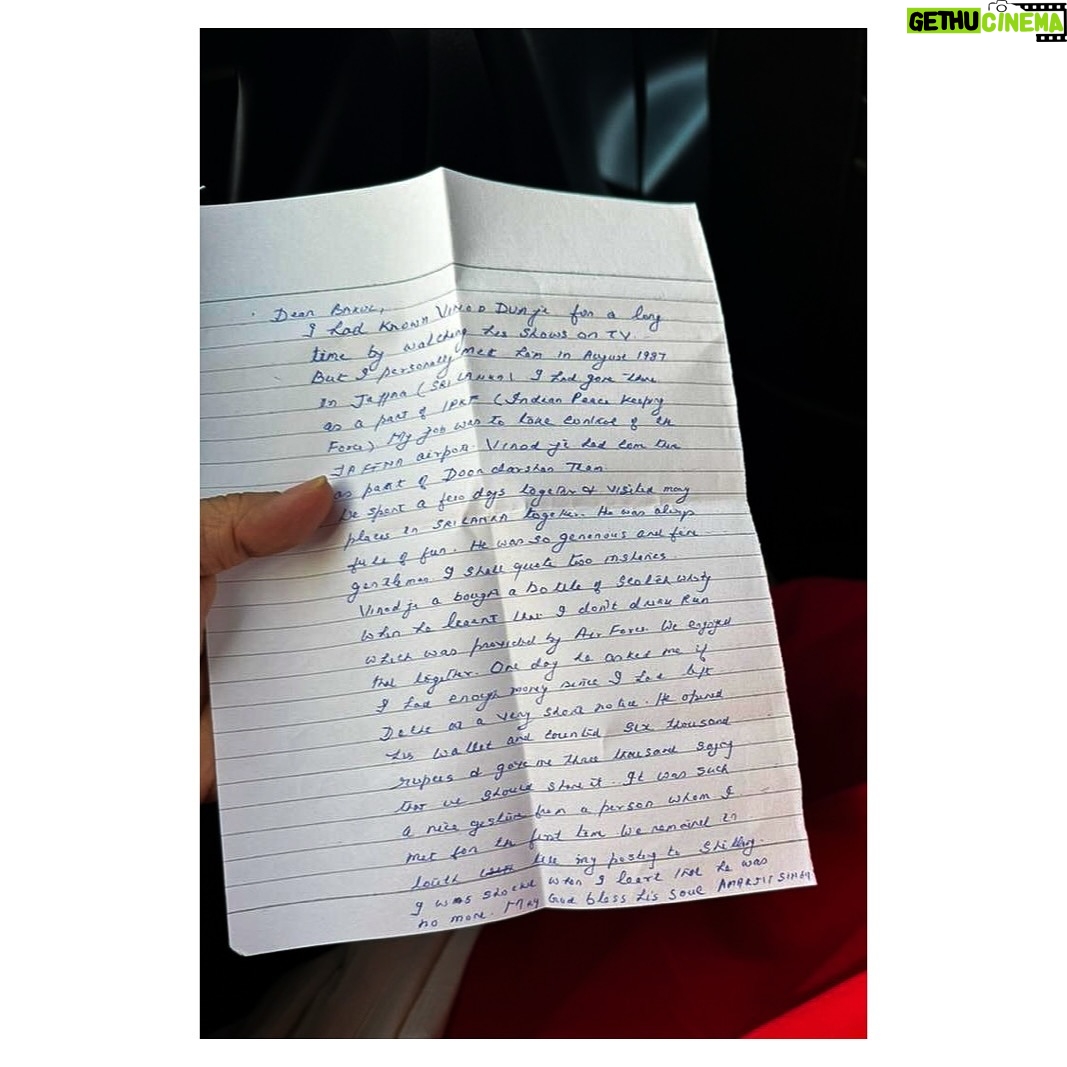 GETHUCINEMA
Dear BAKUL,
I had known VINOD DUA ji for a long
time by watching his shows on TV.
But I personally met him in August 1987
in Jaffna (SRI LANKA). I had gone there
as a part of IPKF (Indian Peace Keeping
Force) My job was to take control of the
JAFFNA airport. Vinod ji had come there
as part of Doordarshan Team
We spent a few days together & visited many
places in SRI LANKA together. He was always
full of fun. He was so generous and fine
gentleman I shall quote two
Vinod ji a bought a bottle of Scotch whisky
when he learnt that I don't drink Rum
which was provided by Air Force. We enjoyed
that together. One day he asked me if
I had enough money since I had left
Delhi at a very short notice. He opened
his wallet and counted six thousand
rupees & gave me three thousand saying
that we should share it. It was such
a nice gesture from a person whom I
met for the first time We remained in
touch till my posting to Shillong.
I was shocked when I learnt that he was
no more. May God bless his soul AMARJIT SINGH